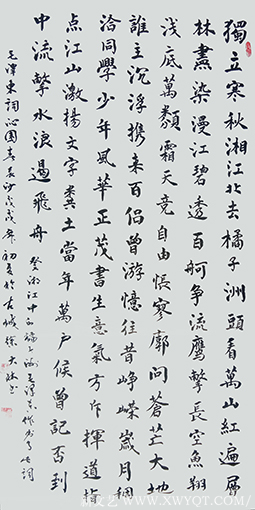 獨立寒秋湘江北去橘子洲頭看萬山紅遍層
林盡染漫江碧透百舸争流鹰擊長空魚翔
浅底萬類霜天竞自由悵寥廓问蒼茫大地
誰主沉浮携来百侣曾游憶往昔峥嵘歲月稠
恰同學少年風華正茂書生意氣方揮遒指
點江山激揚文字糞土當年萬户侯曾記否到
中流擊水浪遏飛舟
毛澤東詞沁園春長沙戊戌年初夏於古城徐
WWW.XWYQT.COM